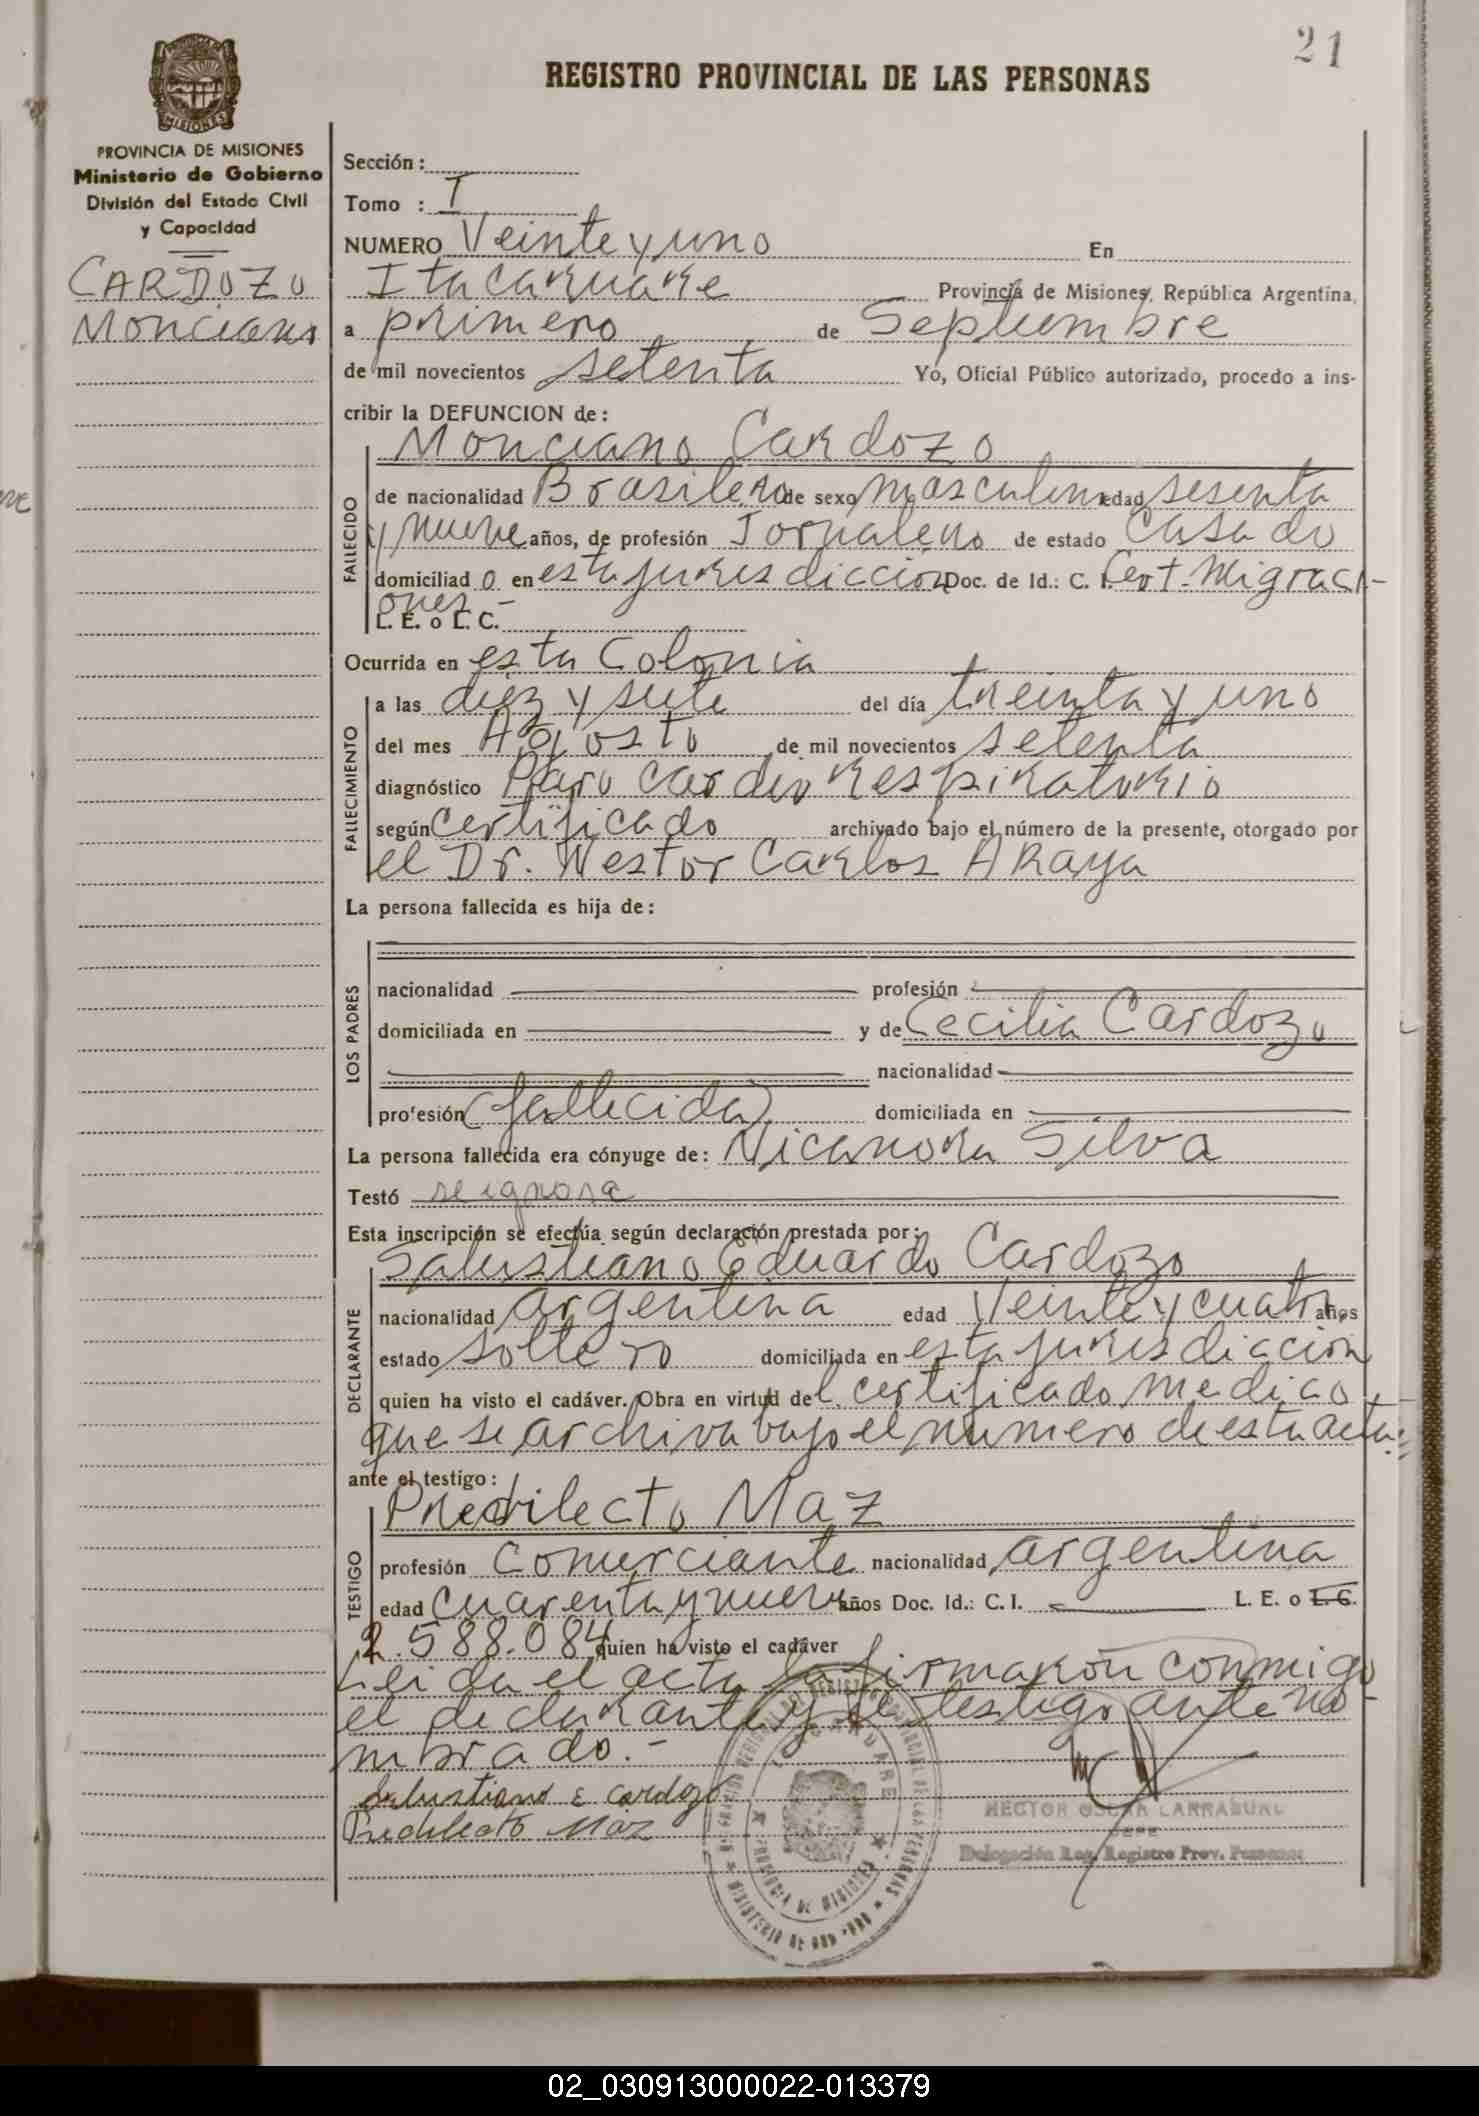 21
REGISTRO PROVINCIAL DE LAS PERSONAS
MISIONES
PROVINCIA DE MISIONES
Ministerio de Gobierno
División del Estado Civil
y Capacidad
CARDOZO
Monciano
Sección:
Tomo : I
NUMERO Veinte y uno En
Itacaruare Provincia de Misiones, República Argentina,
a primero de Septiembre
de mil novecientos setenta Yó, Oficial Público autorizado, procedo a ins-
cribir la DEFUNCION de:
Monciano Cardozo
FALLECIDO
de nacionalidad Brasilero de sexo masculino edad sesenta
y nueve años, de profesión Jornalero de estado Casado
domiciliad o en esta jurisdiccion Doc. de Id.: C. I. Cert. Migraci-
ones.-
L. E. o L. C.
Ocurrida en esta Colonia
FALLECIMIENTO
a las diez y siete del día treinta y uno
del mes Agosto de mil novecientos setenta
diagnóstico Paro cardio respiratorio
según Certificado archivado bajo el número de la presente, otorgado por
el Dr. Nestor Carlos Araya
La persona fallecida es hija de:
LOS PADRES
nacionalidad profesión
domiciliada en y de Cecilia Cardozo
nacionalidad
profesión (fallecida) domiciliada en
La persona fallecida era cónyuge de: Nicanora Silva
Testó se ignora
Esta inscripción se efectúa según declaración prestada por:
Salustiano Eduardo Cardozo
DECLARANTE
nacionalidad argentina edad Veinte y cuatro años
estado soltero domiciliada en esta jurisdiccion
quien ha visto el cadáver. Obra en virtud del certificado medico
que se archiva bajo el numero de esta acta.=
ante el testigo:
Predilecto Maz
TESTIGO
profesión Comerciante nacionalidad argentina
edad cuarenta y nueve años Doc. Id.: C. I. L. E. o L. C.
2.588.084 quien ha visto el cadáver
Leida el acta la firmaron conmigo
el declarante y el testigo ante no-
mbrado.-
Salustiano E Cardozo
Predilecto Maz
HECTOR OSCAR LARRABURU
JEFE
Delegación Reg. Registro Prov. Personas
ITACARUARE
PROVINCIA DE MISIONES
02_030913000022-013379